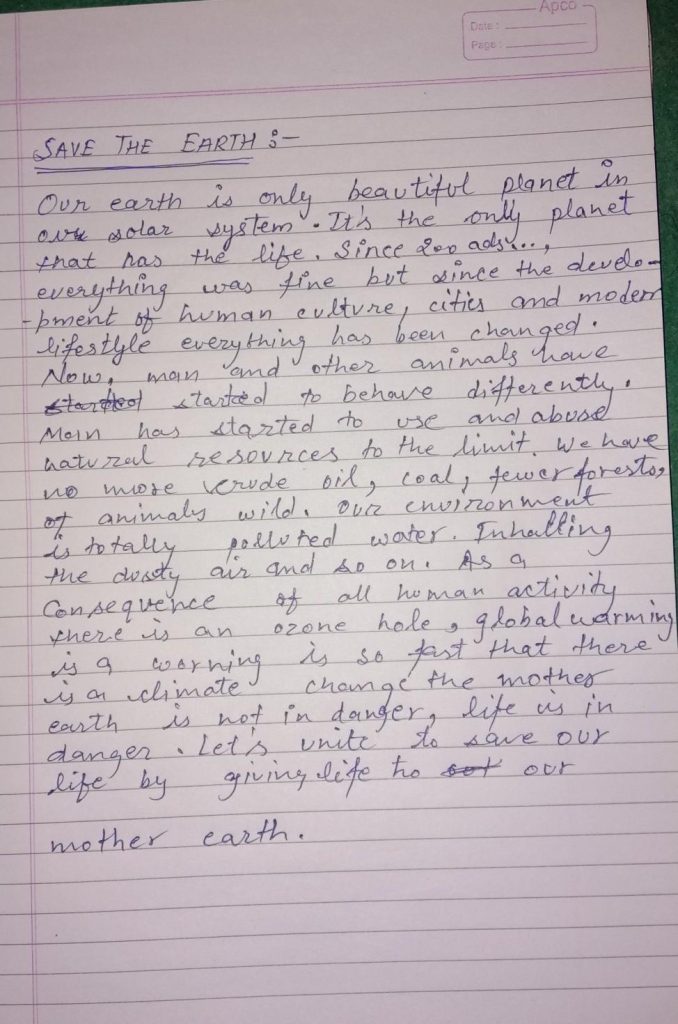 Apco
Date :
Page :
SAVE THE EARTH :-
Our earth is only beautiful planet in
our solar system. It's the only planet
that has the life. Since 200 ads...,
everything was fine but since the develo-
-pment of human culture, cities and modern
lifestyle everything has been changed.
Now, man and other animals have
started started to behave differently.
Man has started to use and abuse
natural resources to the limit. We have
no more crude oil, coal, fewer forests,
of animals wild. Our environment
is totally polluted water. Inhalling
the dusty air and so on. As a
Consequence of all human activity
there is an ozone hole, global warming
is a worning is so fast that there
is a climate change the mother
earth is not in danger, life is in
danger. Let's unite to save our
life by giving life to our
mother earth.